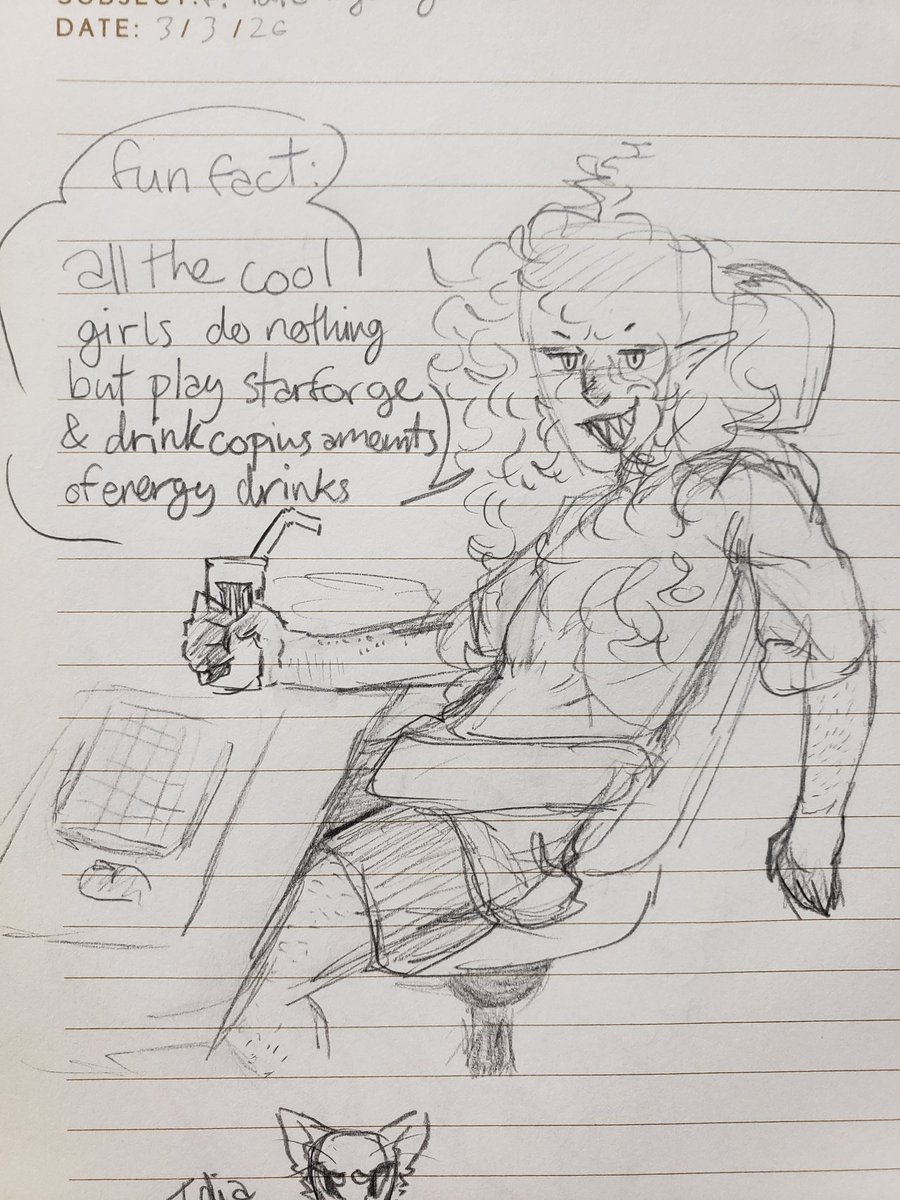 SUBJECT:
DATE: 3/3/26
fun fact:
all the cool
girls do nothing
but play starforge
& drink copius amounts
of energy drinks
Idia